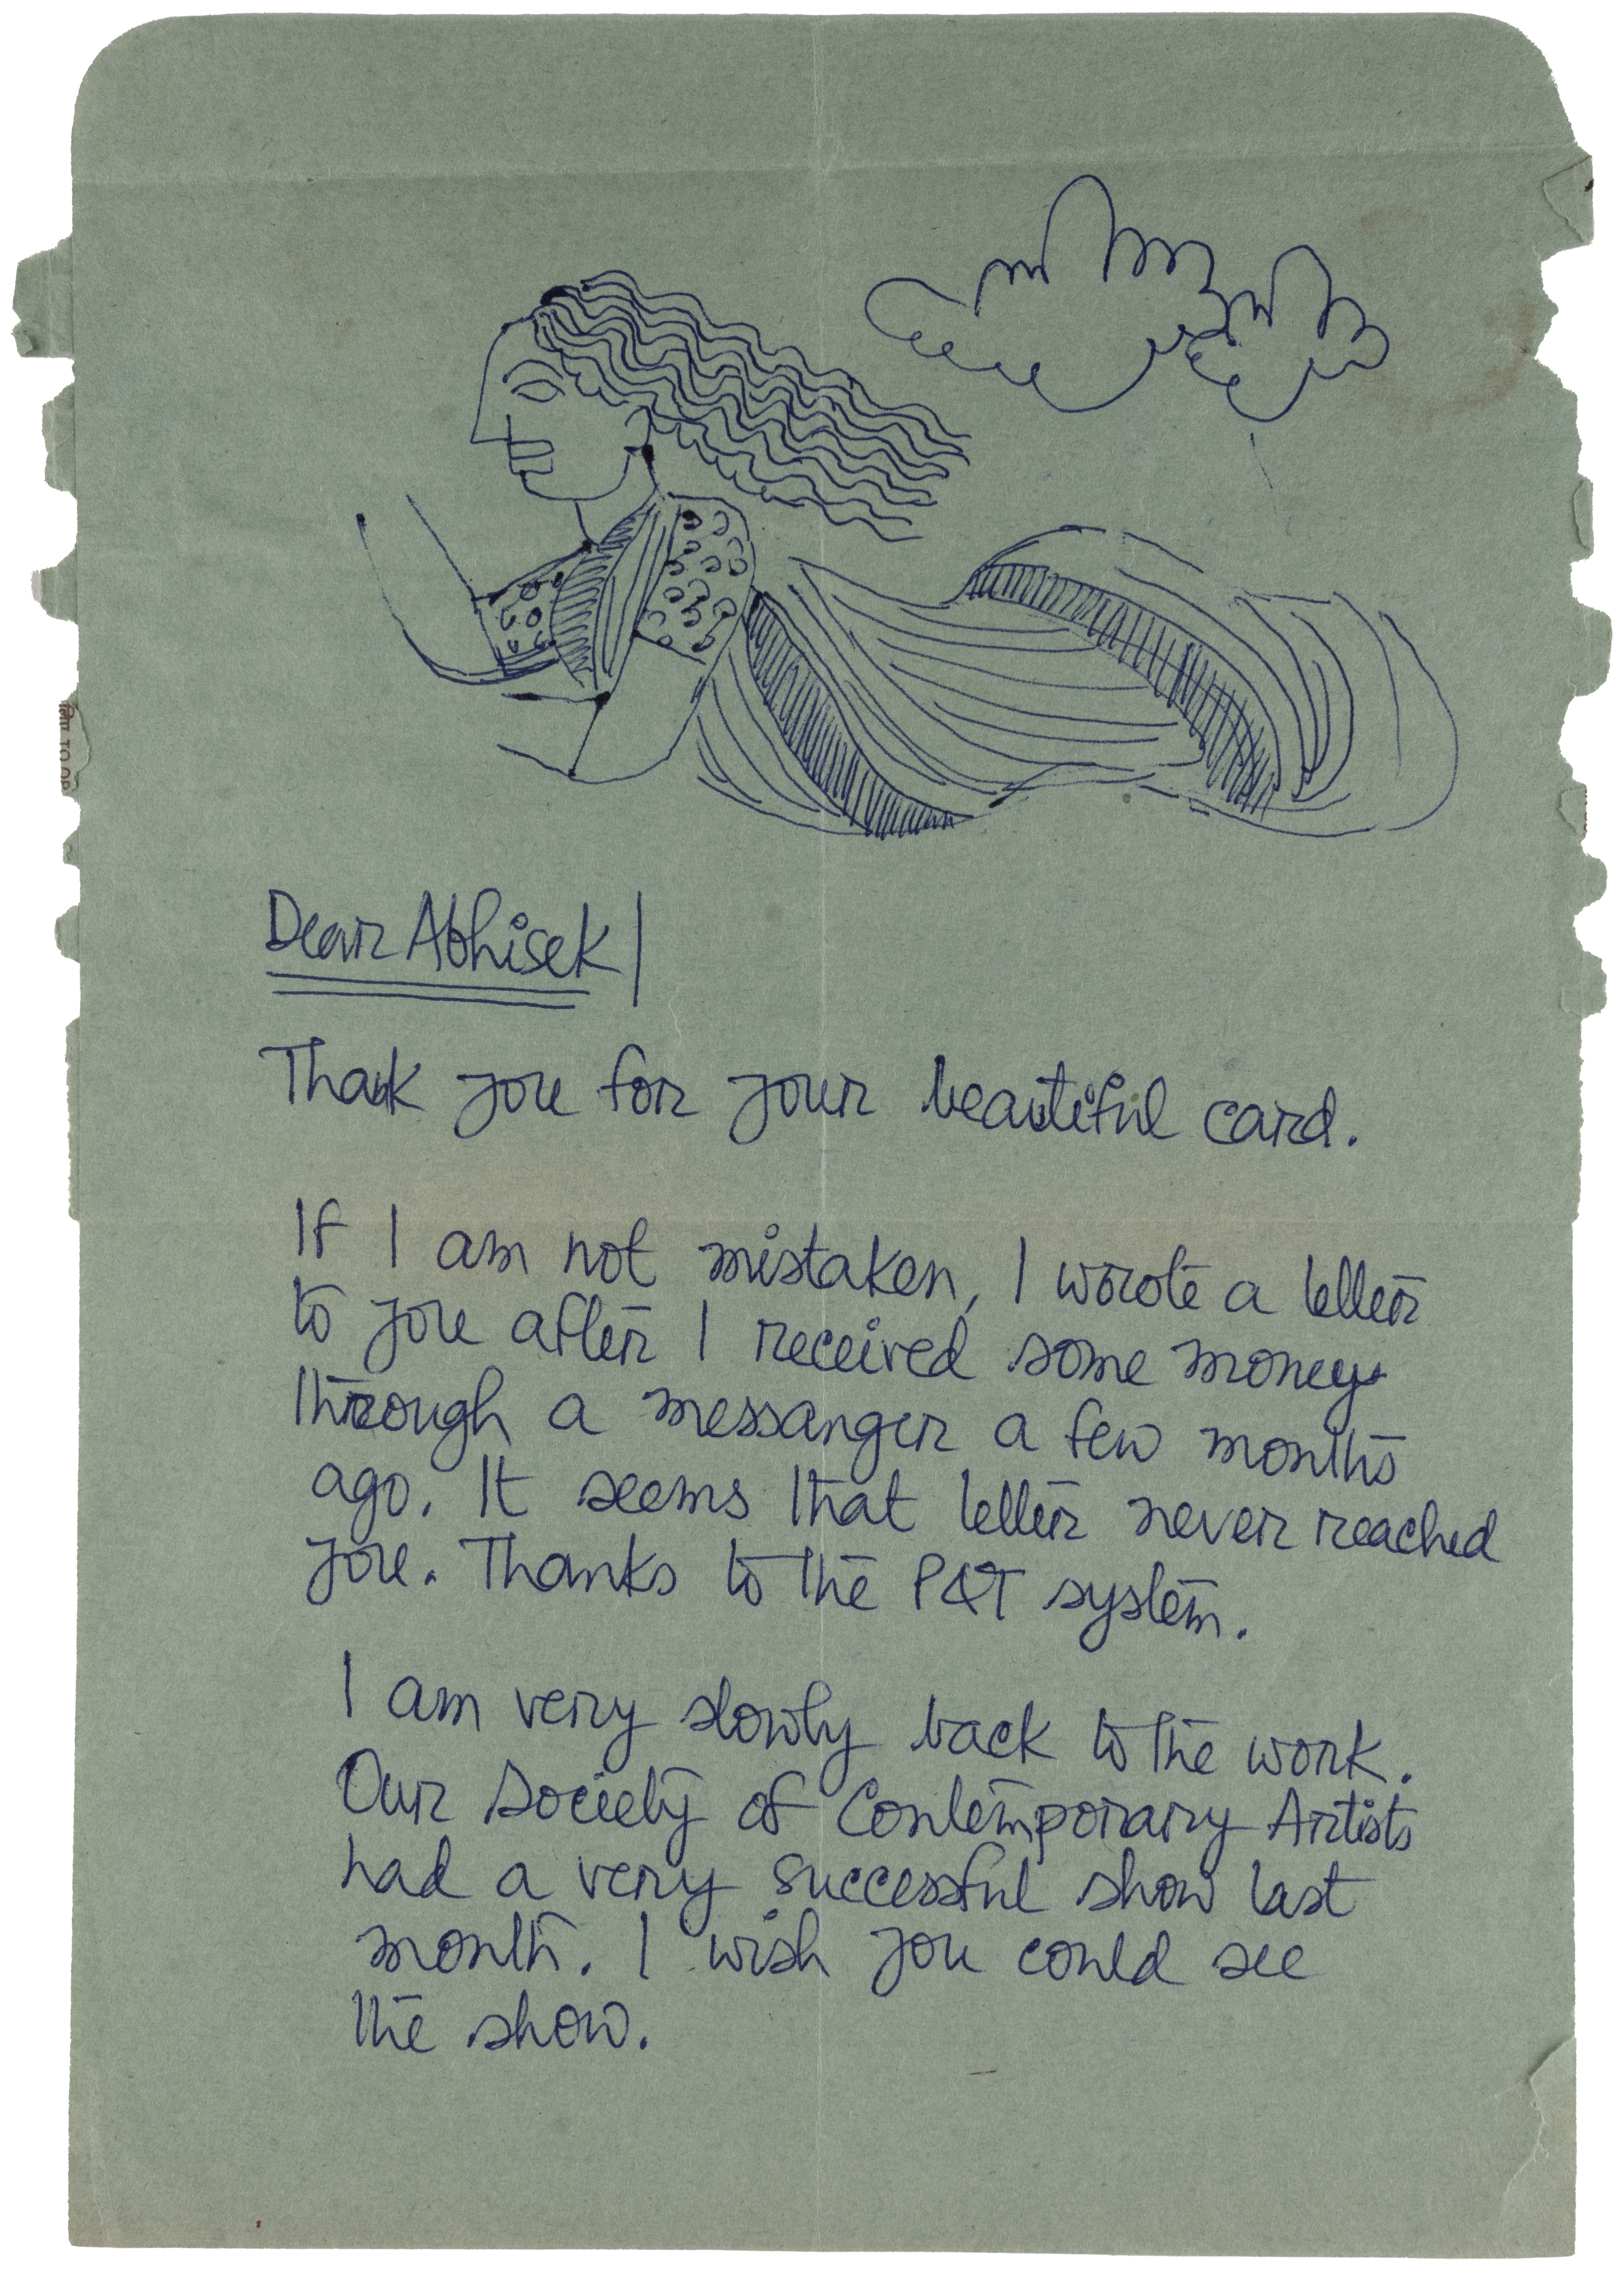 Dear Abhisek|
Thank you for your beautiful card.
If I am not mistaken, I wrote a letter
to you after I received some money
through a messanger a few months
ago. It seems that letter never reached
you. Thanks to the P&T system.
I am very slowly back to the work.
Our Society of Contemporary Artists
had a very successful show last
month. I wish you could see
the show.